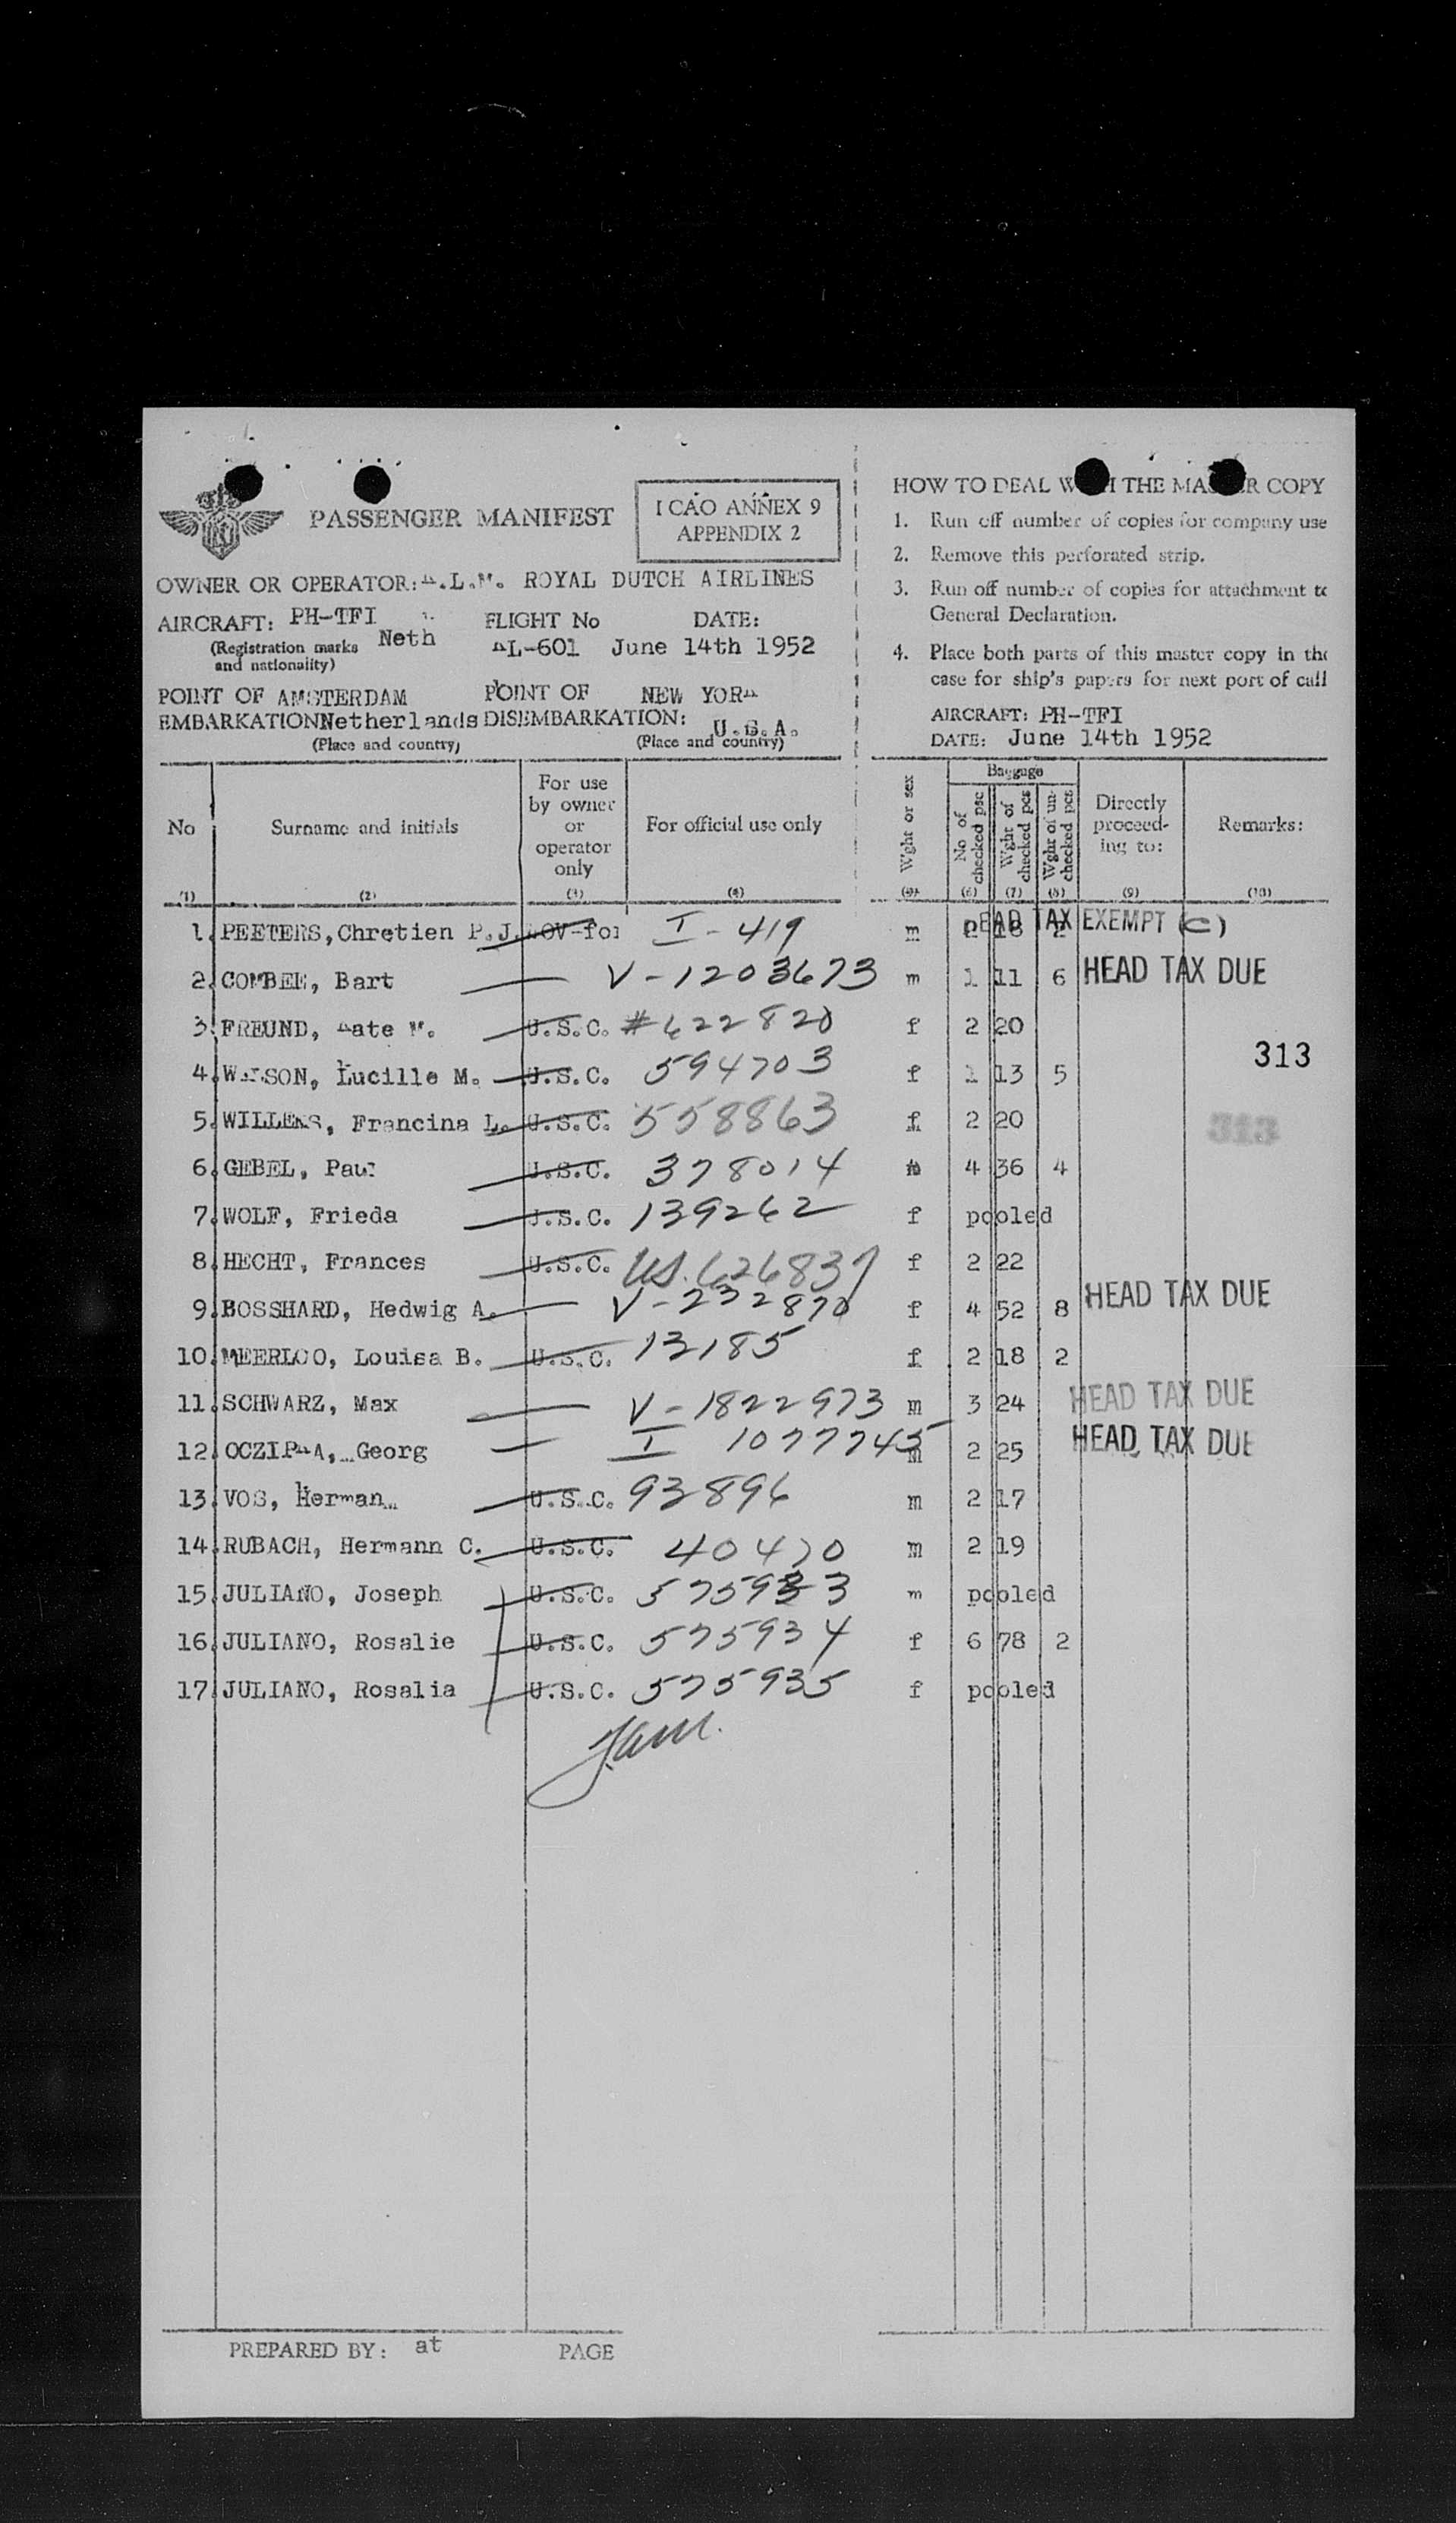 PASSENGER MANIFEST
ICAO ANNEX 9
APPENDIX 2
OWNER OR OPERATOR: .L.M. ROYAL DUTCH AIRLINES
AIRCRAFT: PH-TFI
(Registration marks and nationality) Neth
FLIGHT No L-601
DATE: June 14th 1952
POINT OF EMBARKATION: AMSTERDAM Netherlands
(Place and country)
POINT OF DISEMBARKATION: NEW YOR U.S.A.
(Place and country)
HOW TO DEAL WITH THE MASTER COPY
1. Run off number of copies for company use
2. Remove this perforated strip.
3. Run off number of copies for attachment to
General Declaration.
4. Place both parts of this master copy in the
case for ship's papers for next port of call
AIRCRAFT: PH-TFI
DATE: June 14th 1952
No Surname and initials For use by owner or operator only For official use only Wght or sex Baggage No of checked pcs Wght of checked pcs Wght of unchecked pcs Directly proceeding to: Remarks:
(1) (2) (3) (4) (5) (6) (7) (8) (9) (10)
1. PEETERS, Chretien P.J. I - 419 m 2 18 2 HEAD TAX EXEMPT (C)
2. Bart V - 1203673 m 1 11 6 HEAD TAX DUE
3. FREUND, ate M. U.S.C. # 622820 f 2 20
313
4. Lucille M. U.S.C. 594703 f 1 13 5
5. WILLEMS, Francina L. U.S.C. 558863 f 2 20
313
6. GEBEL, Paul U.S.C. 378014 m 4 36 4
7. WOLF, Frieda U.S.C. 139262 f pooled
8. HECHT, Frances U.S.C. US. 626837 f 2 22
9. BOSSHARD, Hedwig A. V - 232870 f 4 52 8 HEAD TAX DUE
10. MEERLOO, Louisa B. U.S.C. 13185 f 2 18 2
11. SCHWARZ, Max V - 1822973 m 3 24 HEAD TAX DUE
12. Georg I 1077745 m 2 25 HEAD TAX DUE
13. VOS, Herman U.S.C. 93896 m 2 17
14. RUBACH, Hermann C. U.S.C. 40470 m 2 19
15. JULIANO, Joseph U.S.C. 575933 m pooled
16. JULIANO, Rosalie U.S.C. 575934 f 6 78 2
17. JULIANO, Rosalia U.S.C. 575935 f pooled
PREPARED BY: at PAGE